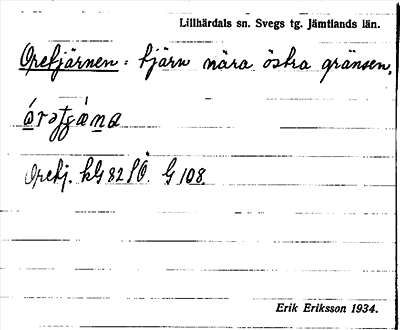 Lillhärdals sn. Svegs tg. Jämtlands län.
Oretjärnen: tjärn nära östra gränsen.
Oretj. kG 82 SÖ. G 108.
Erik Eriksson 1934.